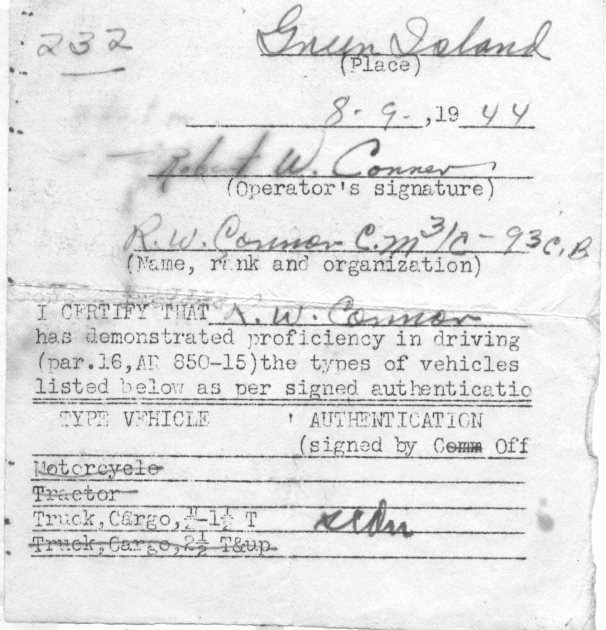 232
Green Island
(Place)
8-9-,19 44
Robert W. Conner
(Operator's signature)
R.W. Connor C.M 3/c - 93 C.B
(Name, rank and organization)
I CERTIFY THAT R. W. Connor
has demonstrated proficiency in driving
(par.16,AR 850-15)the types of vehicles
listed below as per signed authenticatio
TYPE VEHICLE ' AUTHENTICATION
(signed by Comm Off
Motorcycle
Tractor
Truck,Cargo,¼-1½ T
Truck,Cargo,2½ T&up